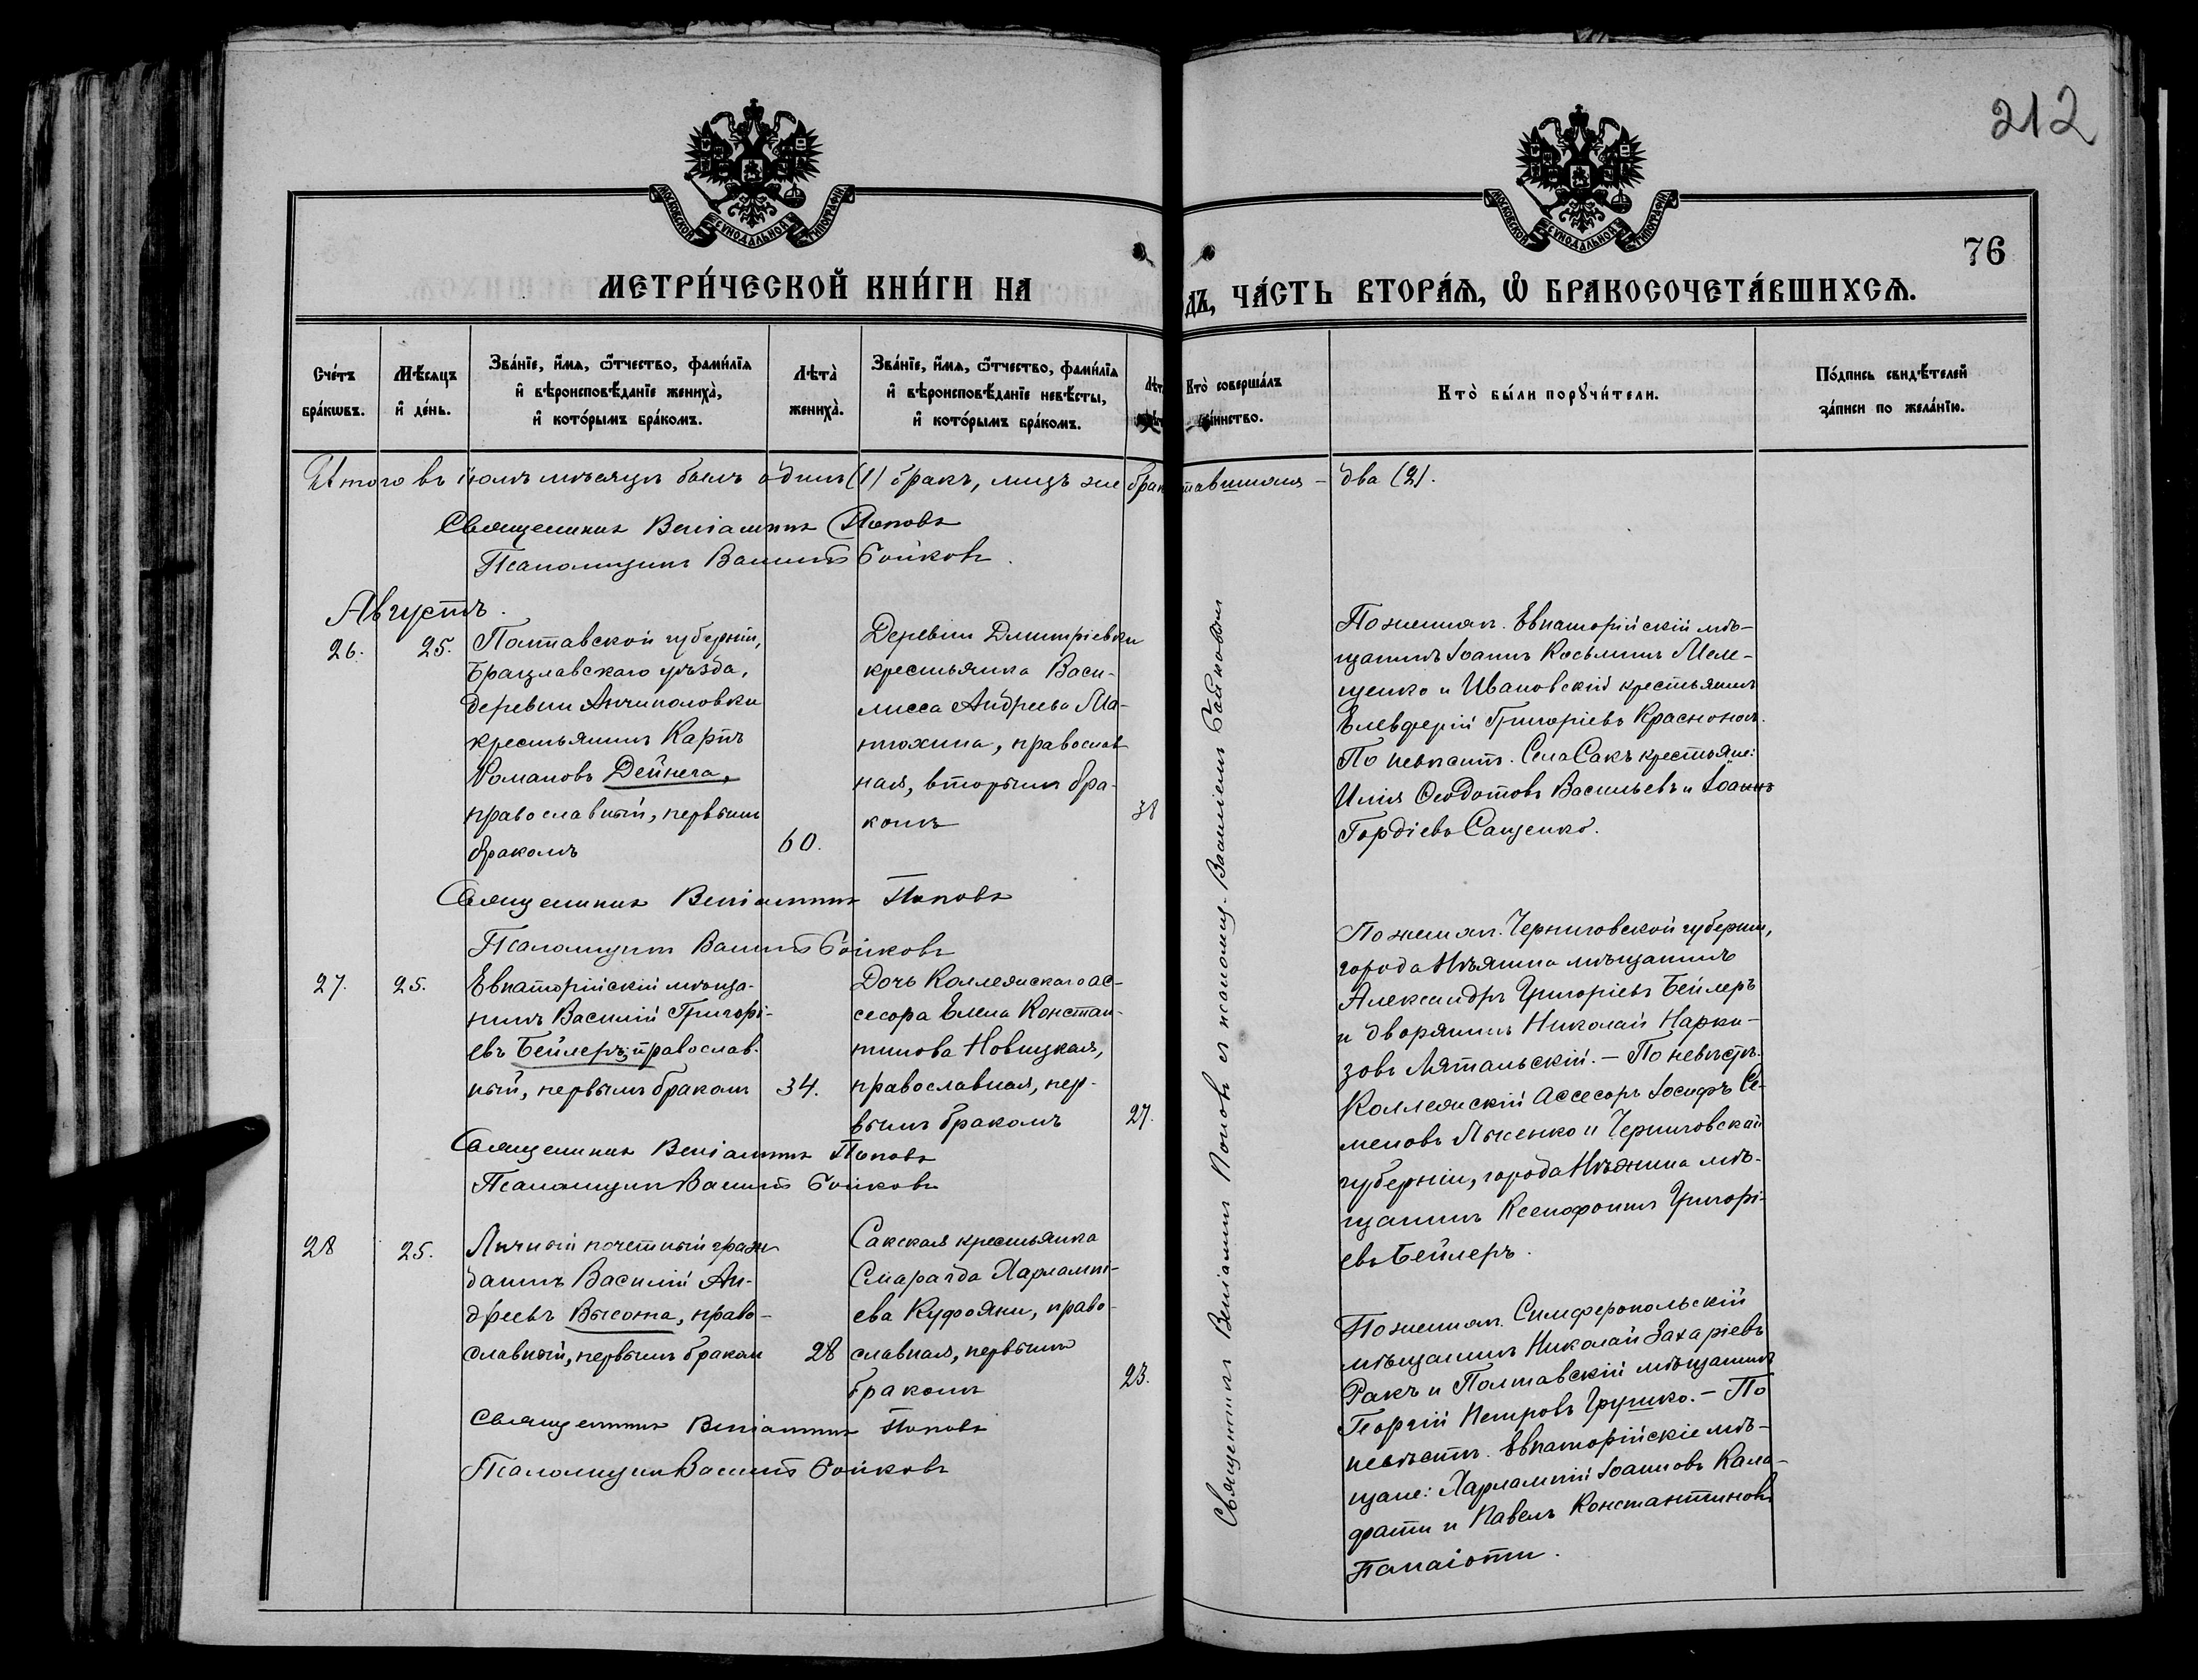 212
76
МОСКОВСКОЙ СѴНОДАЛЬНОЙ ТИПОГРАФІИ
МОСКОВСКОЙ СѴНОДАЛЬНОЙ ТИПОГРАФІИ
МЕТРИ́ЧЕСКОЙ КНИ́ГИ НА
ДЪ, ЧА́СТЬ ВТОРА́Ѧ, Ѽ БРАКОСОЧЕТА́ВШИХСѦ.
Сче́тъ бра́кѡвъ.
Мѣ́сяцъ и҆ де́нь.
Зва́нїе, и҆́мѧ, ѻ҆́тчество, фами́лїѧ и҆ вѣроисповѣ́данїе жениха̀, и҆ кото́рымъ бра́комъ.
Лѣта̀ жениха̀.
Зва́нїе, и҆́мѧ, ѻ҆́тчество, фами́лїѧ и҆ вѣроисповѣ́данїе невѣ́сты, и҆ кото́рымъ бра́комъ.
Лѣт
Кто̀ соверша́лъ та́инство.
Кто̀ бы́ли порꙋчи́тели.
По́дпись свидѣ́телей за́писи по жела́нїю.
Итого въ іюлѣ мѣсяцѣ былъ одинъ (1) бракъ, лицъ же брак тавшихся – два (2).
Священникъ Веніаминъ Поповъ
Псаломщикъ Василій Бойковъ.
Августъ.
26.
25.
Полтавской губерніи,
Брацлавскаго уѣзда,
деревни Анчиполовки
крестьянинъ Карпъ
Романовъ Дейнега,
православный, первымъ
бракомъ
60.
Деревни Димитріевки
крестьянка Васи-
лисса Андреева Ма-
тюхина, православ
ная, вторымъ бра-
комъ
38
По женихѣ. Евпаторійскій мѣ-
щанинъ Іоаннъ Косьминъ Меле-
щенко и Ивановскій крестьянинъ
Елевферій Григоріевъ Красноном.
По невѣстѣ. Села Сакъ крестьяне:
Илія Ѳеодотовъ Васильевъ и Іоаннъ
Гордіевъ Саценко.
Священникъ Веніаминъ Поповъ
Псаломщикъ Василій Бойковъ
27.
25.
Евпаторійскій мѣща-
нинъ Василій Григорі-
евъ Бейлеръ, православ-
ный, первымъ бракомъ
34.
Дочь Коллежскаго ас-
сесора Елена Констан-
тинова Новицкая,
православная, пер-
вымъ бракомъ
27.
По женихѣ. Черниговской губерніи,
города Нѣжина мѣщанинъ
Александръ Григоріевъ Бейлеръ
и дворянинъ Николай Нарки-
зовъ Лятальскій. – По невѣстѣ.
Коллежскій Ассесоръ Іосифъ Се-
меновъ Лысенко и Черниговской
губерніи, города Нѣжина мѣ-
щанинъ Ксенофонтъ Григорі-
евъ Бейлеръ.
Священникъ Веніаминъ Поповъ
Псаломщикъ Василій Бойковъ
28
25.
Личный почетный граж
данинъ Василій Ан-
дреевъ Высота, право-
славный, первымъ бракомъ
28
Сакская крестьянка
Смарагда Харлампі-
ева Куфояни, право-
славная, первымъ
бракомъ
23.
По женихѣ. Симферопольскій
мѣщанинъ Николай Захаріевъ
Ракъ и Полтавскій мѣщанинъ
Георгій Петровъ Грушко. – По
невѣстѣ. Евпаторійскіе мѣ-
щане: Харлампій Іоанновъ Кала-
фати и Павелъ Константиновъ
Панаіоти.
Священникъ Веніаминъ Поповъ
Псаломщикъ Василій Бойковъ
Священникъ Веніаминъ Поповъ и псаломщ. Василіемъ Байковым